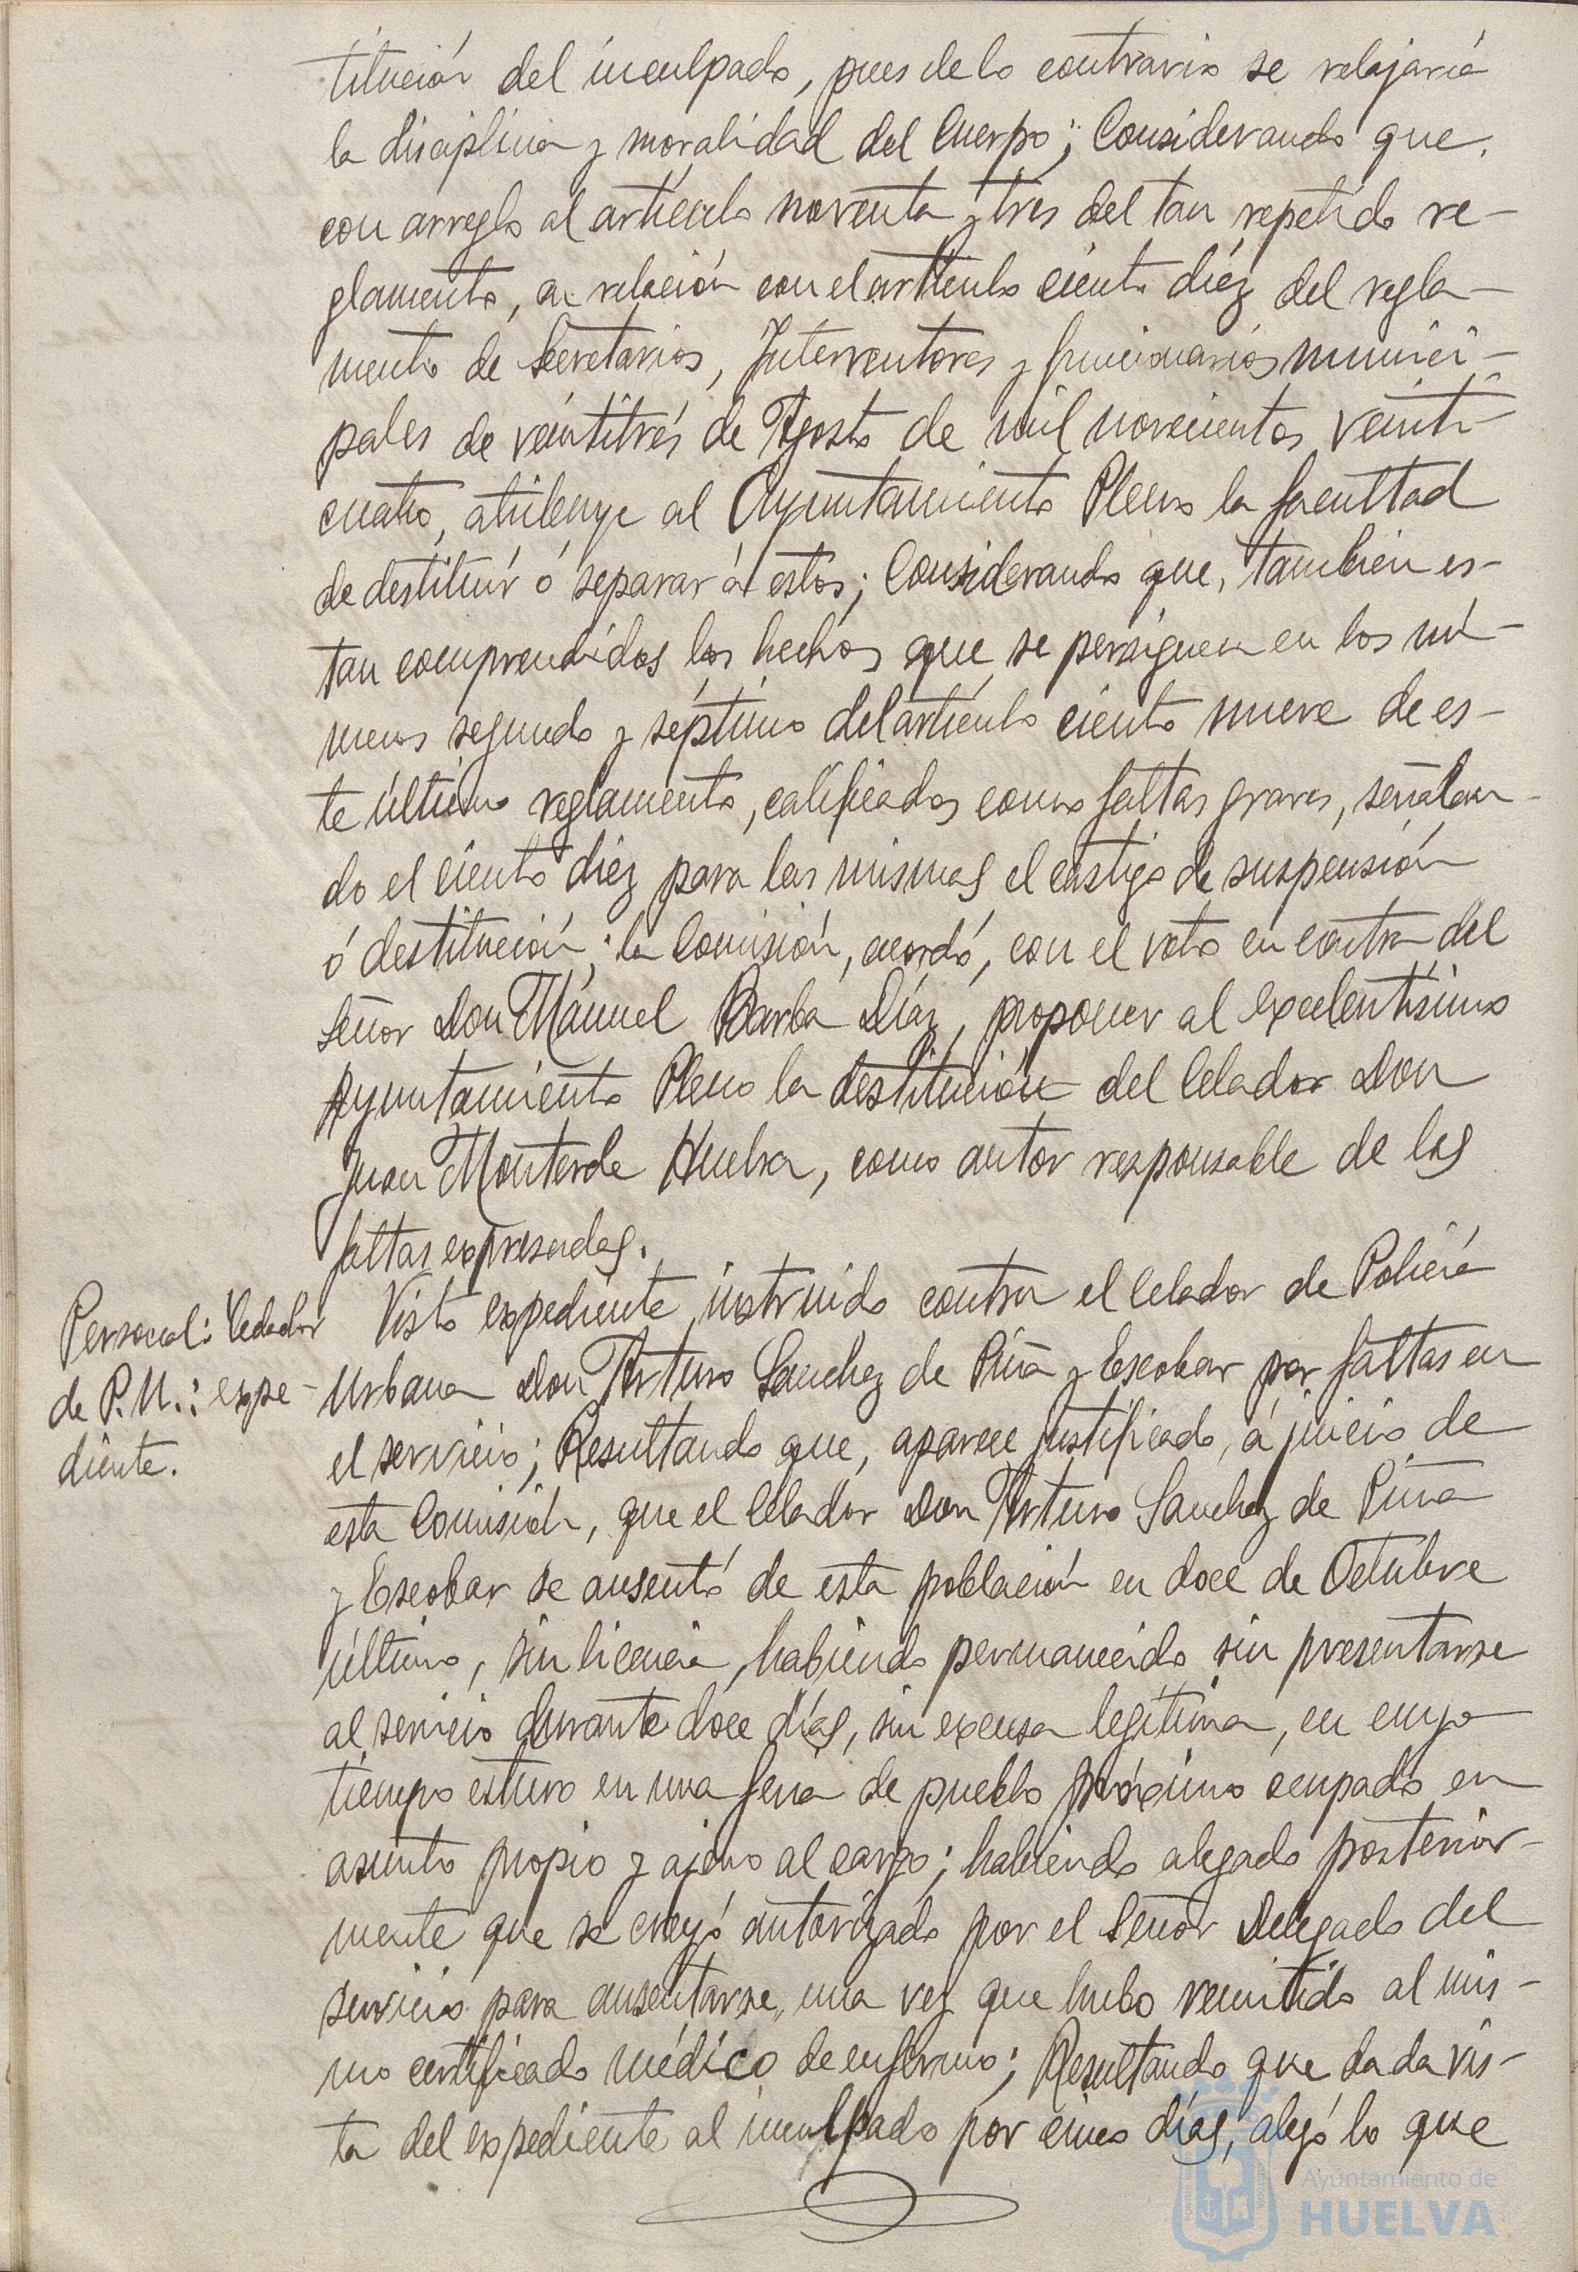 titución del inculpado, pues de lo contrario se relajaría
la disciplina y moralidad del Cuerpo; Considerando que,
con arreglo al artículo noventa y tres del tan repetido re-
glamento, en relación con el artículo ciento diéz del regla-
mento de Secretarios, Interventores y funcionarios munici-
pales de veintitrés de Agosto de mil novecientos veinti-
cuatro, atribuye al Ayuntamiento Pleno la facultad
de destituír ó separar á estos; Considerando que, también es-
tan comprendidos los hechos que se persiguen en los nú-
meros segundo y séptimo del artículo ciento nueve de es-
te último reglamento, calificados como faltas graves, señalan-
do el ciento diéz para las mismas el castigo de suspensión
ó destitución; la Comisión, acordó, con el voto en contra del
Señor Don Mánuel Barba Díaz, proponer al excelentísimo
Ayuntamiento Pleno la destitución del Celador Don
Juan Monterde Huelva, como autor responsable de las
faltas expresadas.
Personal: Celador
de P. U.: expe-
diente.
Visto expediente instruido contra el Celador de Policía
Urbana Don Arturo Sanchez de Piña y Escobar por faltas en
el servicio; Resultando que, aparece justificado, á juicio de
esta Comisión, que el Celador Don Arturo Sanchez de Piña
y Escobar se ausentó de esta población en doce de Octubre
último, sin licencia, habiendo permanecido sin presentarse
al servicio durante doce días, sin excusa legítima, en cuyo
tiempo estuvo en una feria de pueblo próximo ocupado en
asunto propio y ajeno al cargo; habiendo alegado posterior-
mente que se creyó autorizado por el Señor Delegado del
servicio para ausentarse, una vez que hubo remitido al mis-
mo certificado médico de enfermo; Resultando que dada vis-
ta del expediente al inculpado por cinco días, alegó lo que
Ayuntamiento de
HUELVA